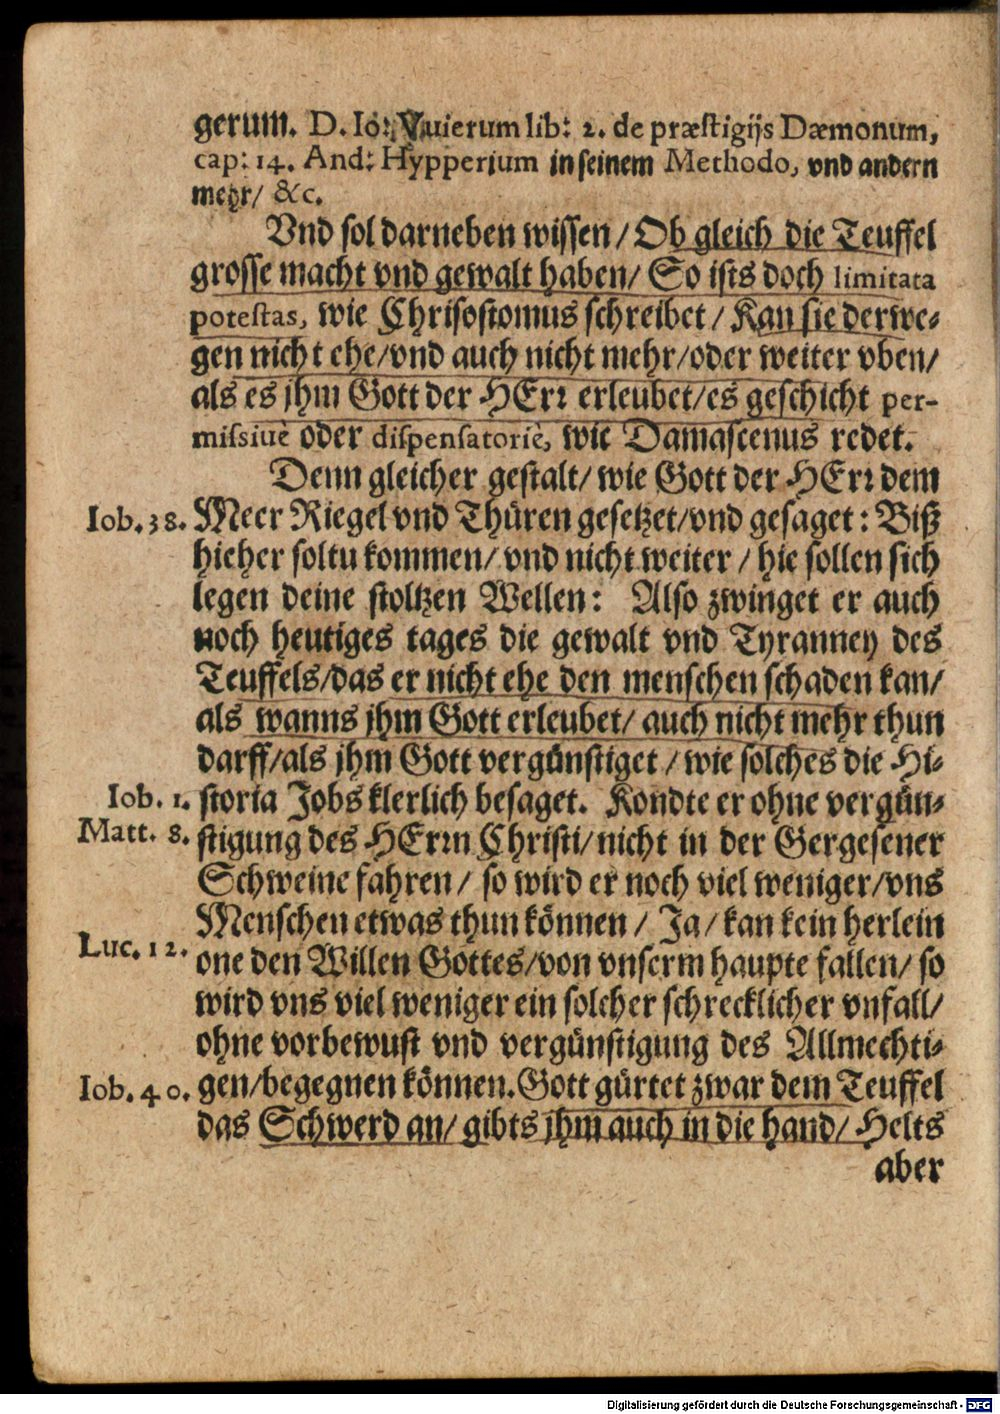 gerum. D. Io: Vuierum lib: 2. de præstigijs Dæmonum,
cap: 14. And: Hypperium in seinem Methodo, vnd andern
mehr/ &c.
Vnd sol darneben wissen/ Ob gleich die Teuffel
grosse macht vnd gewalt haben/ So ists doch limitata
potestas, wie Chrisostomus schreibet/ Kan sie derwe-
gen nicht ehe/ vnd auch nicht mehr/ oder weiter vben/
als es jhm Gott der HErr erleubet/ es geschicht per-
missiuè oder dispensatoriè, wie Damascenus redet.
Denn gleicher gestalt/ wie Gott der HErr dem
Iob. 38. Meer Riegel vnd Thüren gesetzet/ vnd gesaget: Biß
hieher soltu kommen/ vnd nicht weiter/ hie sollen sich
legen deine stoltzen Wellen: Also zwinget er auch
noch heutiges tages die gewalt vnd Tyranney des
Teuffels/ das er nicht ehe den menschen schaden kan/
als wanns jhm Gott erleubet/ auch nicht mehr thun
darff/ als jhm Gott vergünstiget/ wie solches die Hi-
Iob. 1. storia Jobs klerlich besaget. Kondte er ohne vergün-
Matt. 8. stigung des HErrn Christi/ nicht in der Gergesener
Schweine fahren/ so wird er noch viel weniger/ vns
Menschen etwas thun können/ Ja/ kan kein herlein
Luc. 12. one den Willen Gottes/ von vnserm haupte fallen/ so
wird vns viel weniger ein solcher schrecklicher vnfall/
ohne vorbewust vnd vergünstigung des Allmechti-
Iob. 40. gen/ begegnen können. Gott gürtet zwar dem Teuffel
das Schwerd an/ gibts jhm auch in die hand/ Helts
aber
Digitalisierung gefördert durch die Deutsche Forschungsgemeinschaft - DFG